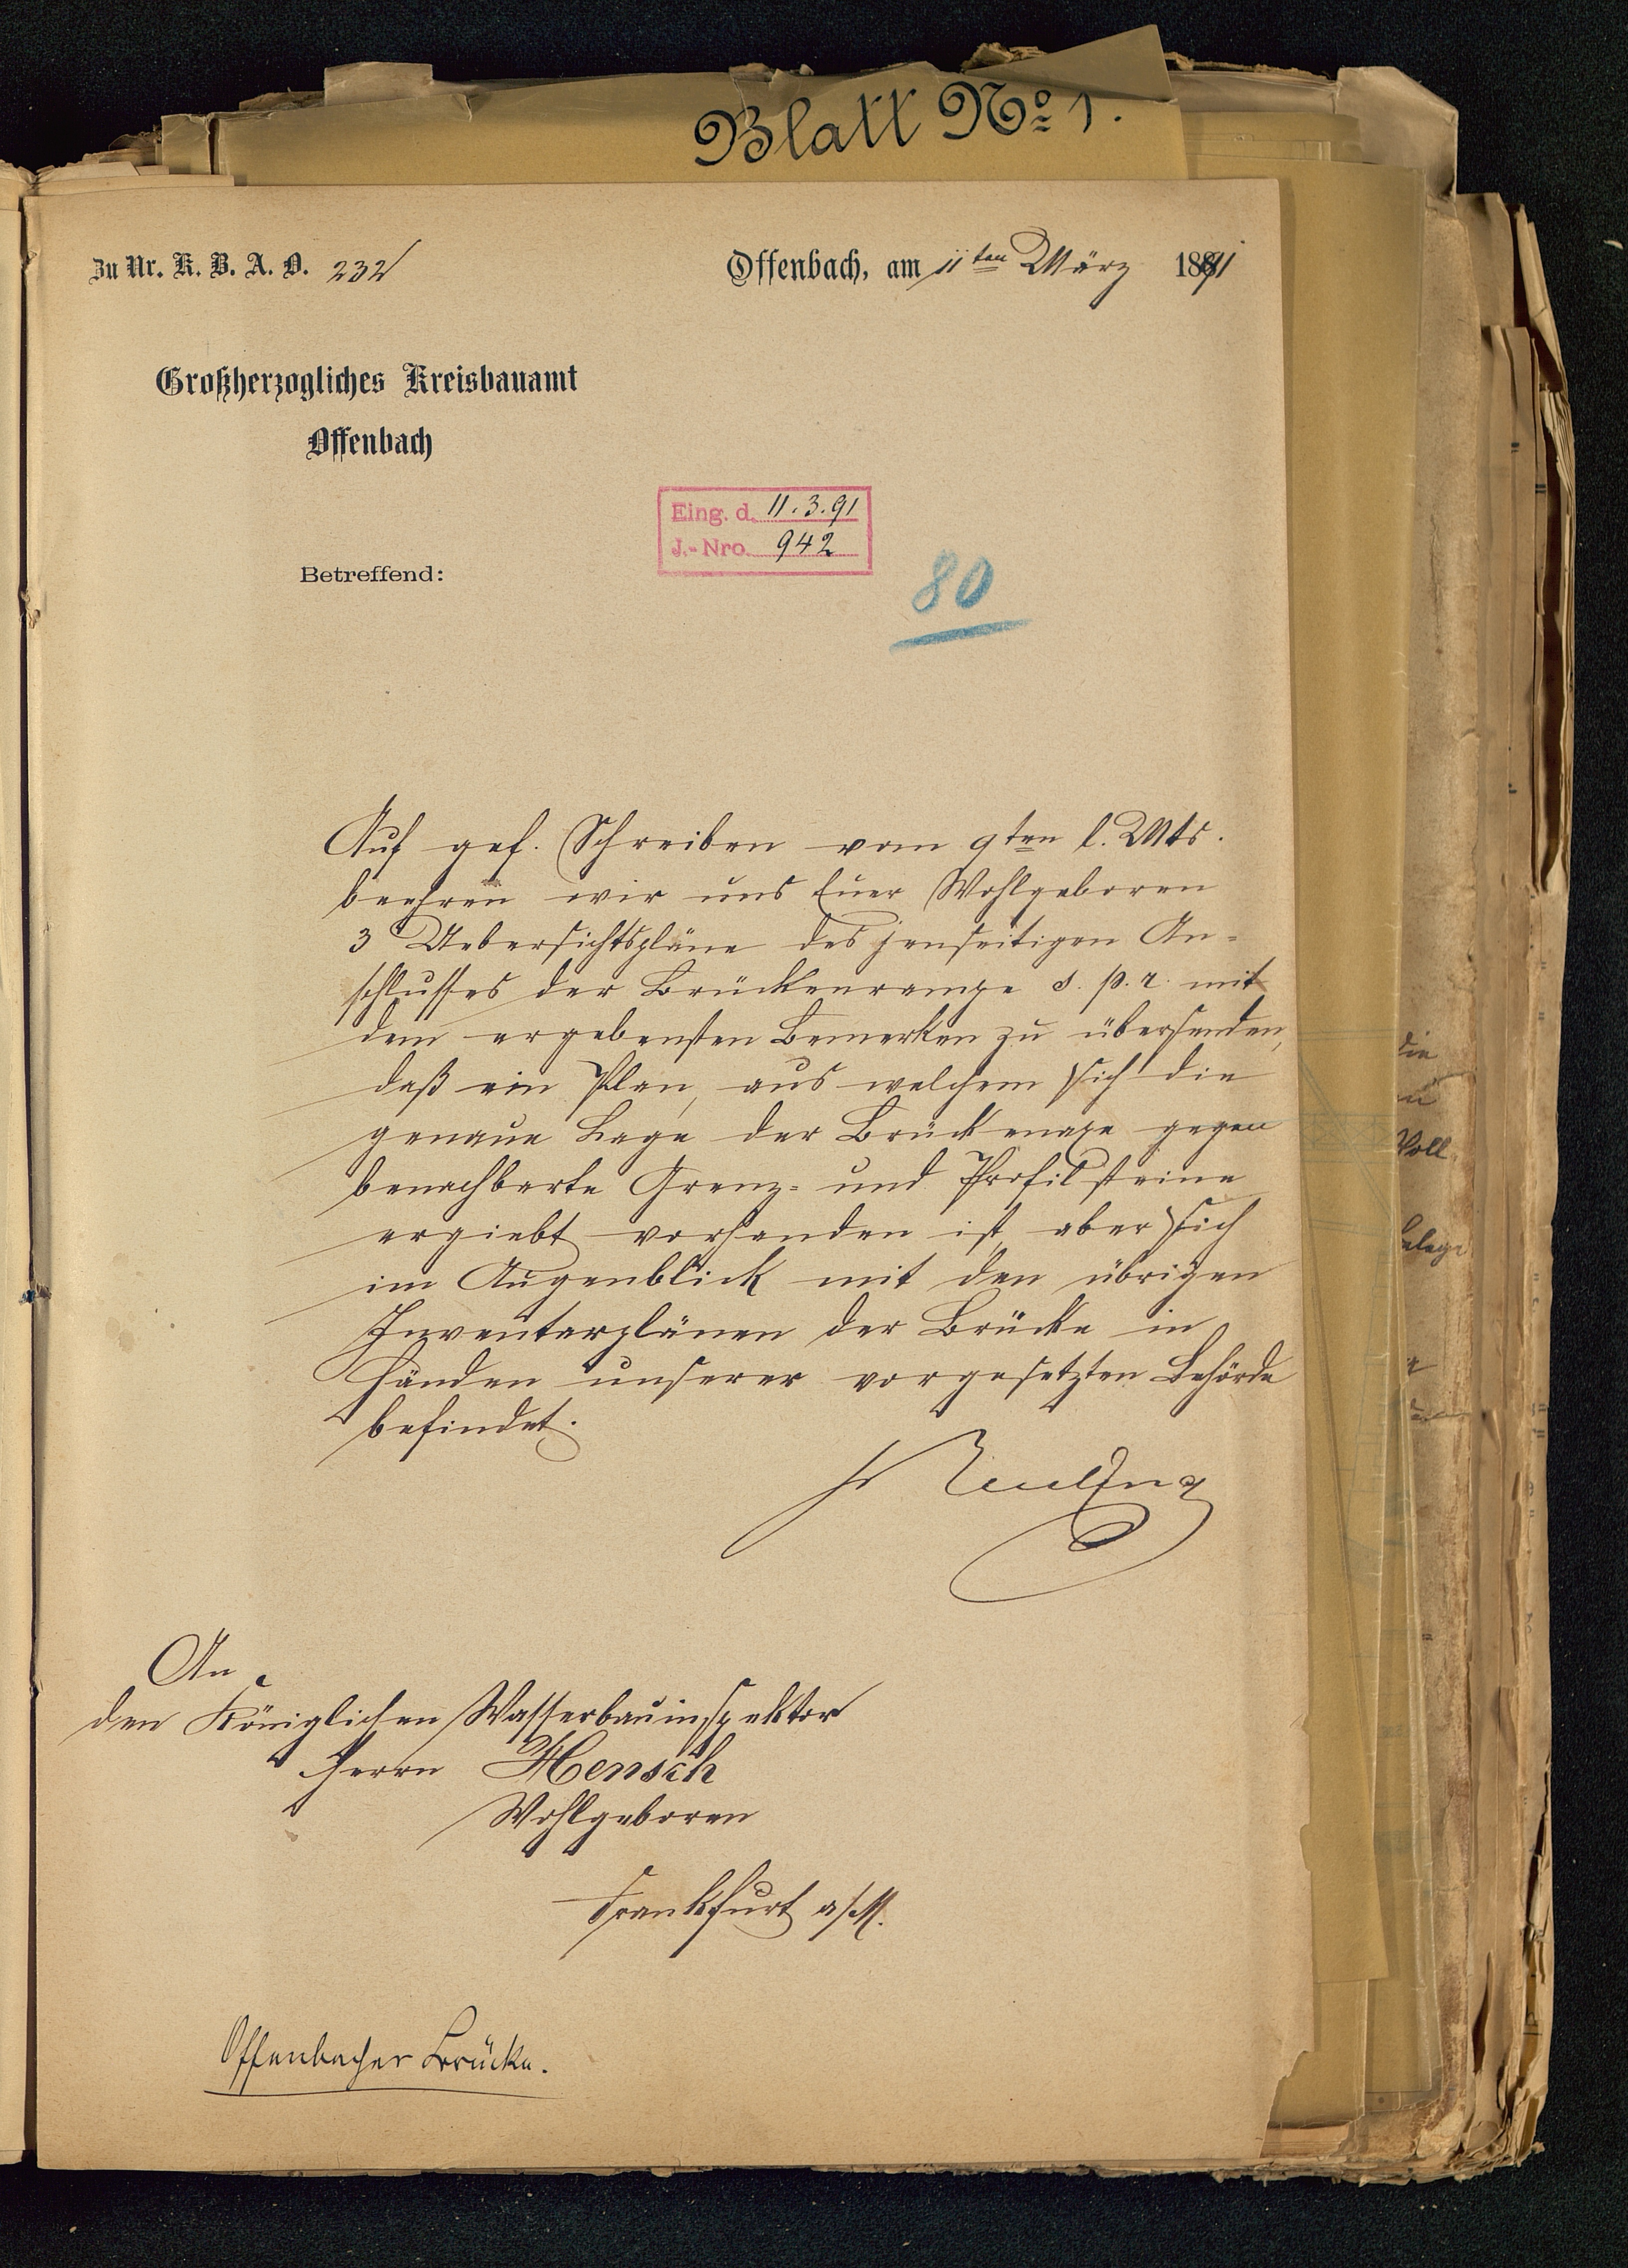 Blatt No 1.
Zu Nr. K. B. A. O. 232
Offenbach, am 11ten März 1891
Großherzogliches Kreisbauamt
Offenbach
Eing. d. 11.3.91
J.-Nro. 942
Betreffend:
80
Auf gef. Schreiben vom 9ten l. Mts.
beehren wir uns Euer Wohlgeboren
3 Uebersichtspläne des jenseitigen An=
schlusses der Brückenrampe s. p. r. mit
dem ergebensten Bemerken zu übersenden,
daß ein Plan, aus welchem sich die
genaue Lage der Brückenaxe gegen
benachbarte Grenz= und Profilsteine
ergiebt vorhanden ist aber sich
im Augenblick mit den übrigen
Inventarplänen der Brücke in
Händen unserer vorgesetzten Behörde
befindet.
Reuling
An
den Königlichen Wasserbauinspektor
Herrn Hensch
Wohlgeboren
Frankfurt a/M.
Offenbacher Brücke.
die
Voll